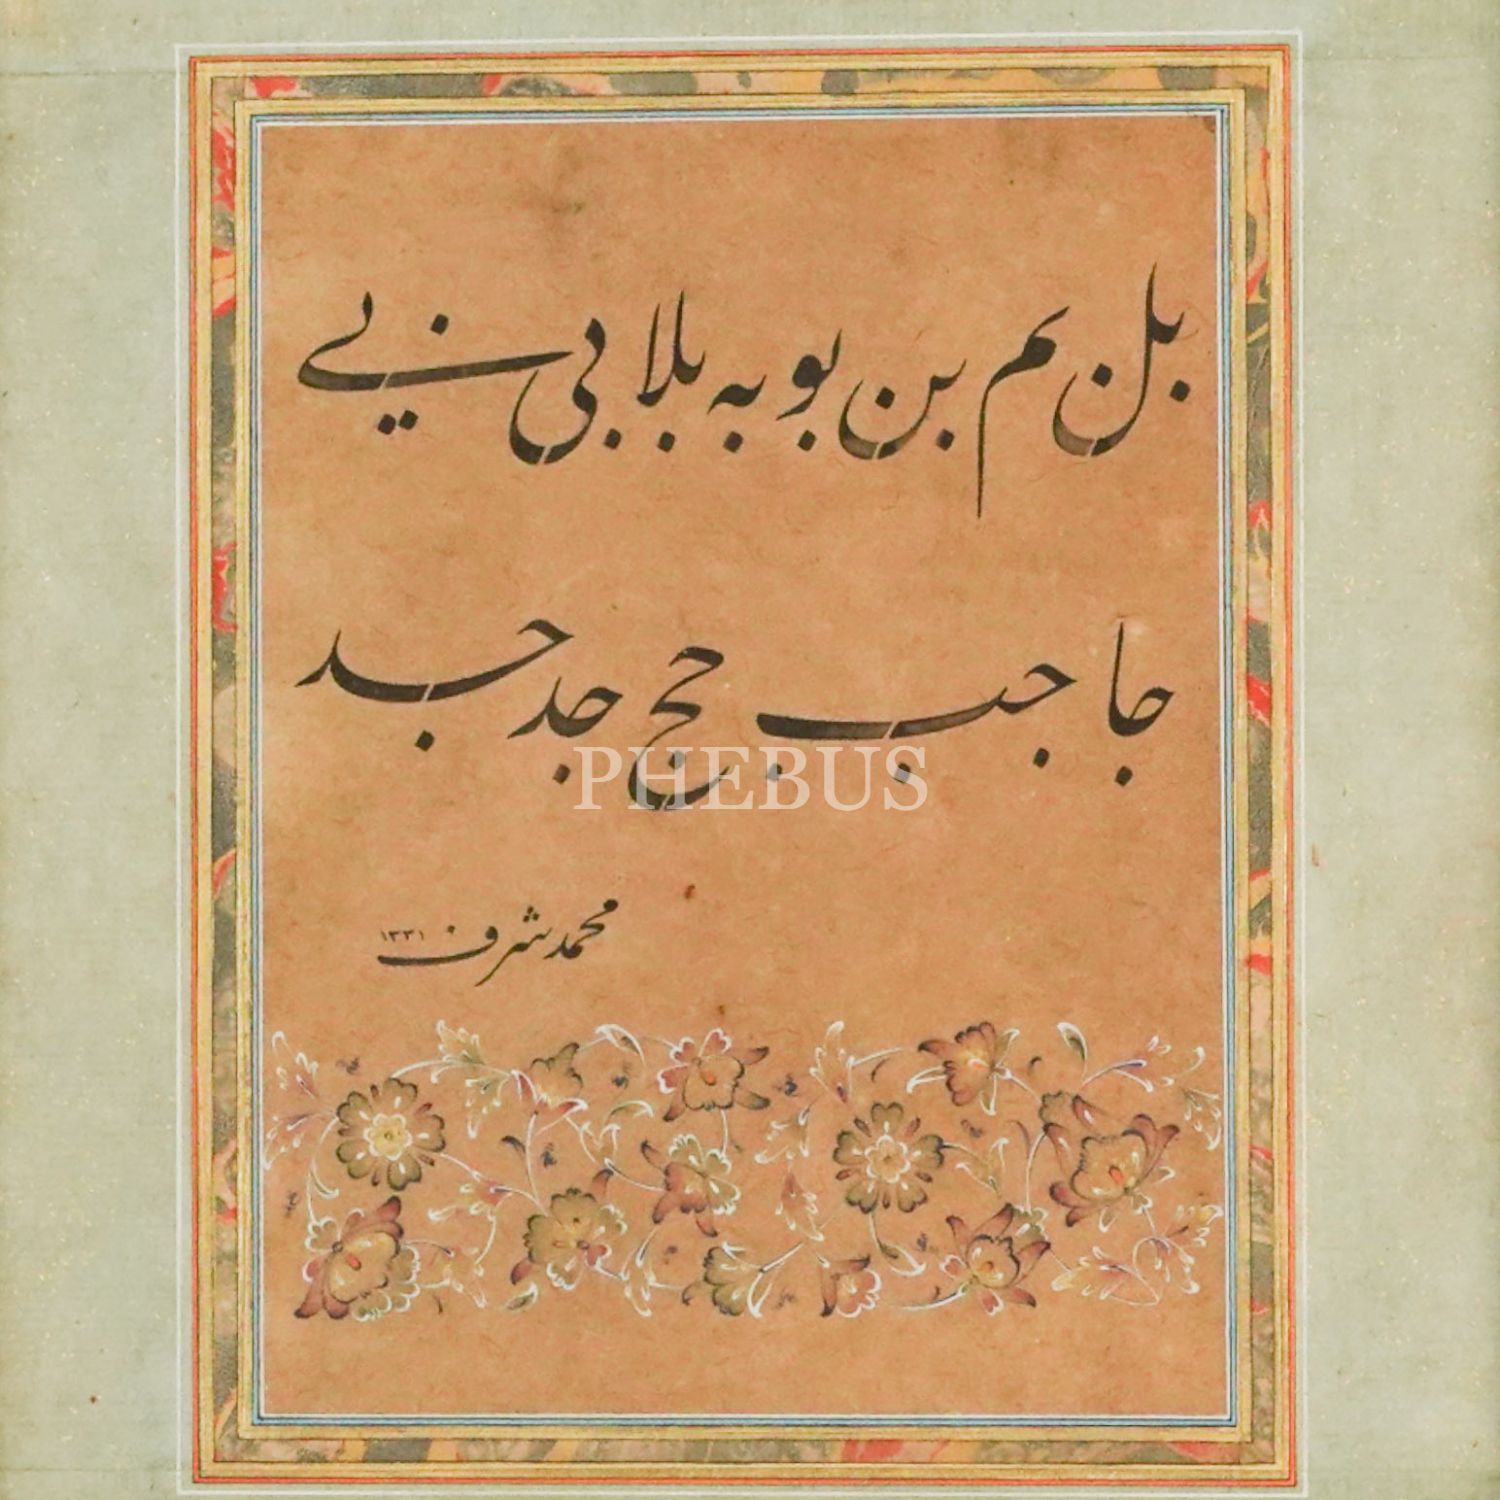 بل بم بن بو به بلا بی بیے
جا جب جج جد جد
PHEBUS
محمد شرف ١٣٣١